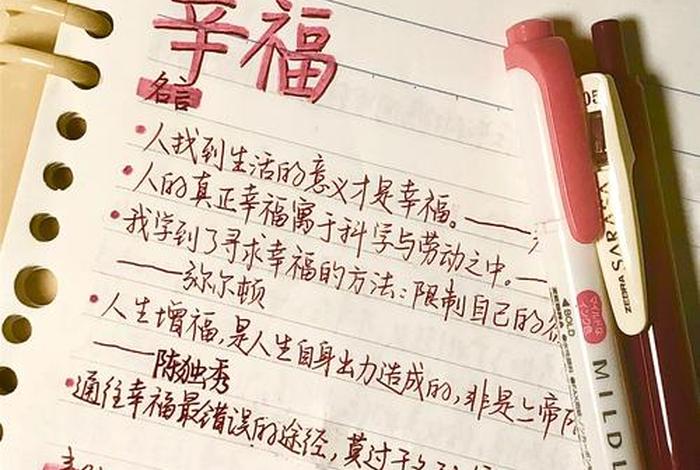 幸福
名言
•人找到生活的意义才是幸福。——
•人的真正幸福寓于科学与劳动之中。—
•我学到了寻求幸福的方法:限制自己的
——弥尔顿
•人生增福,是人生自身出力造成的,非是上帝
——陈独秀
•通往幸福最错误的途径,莫过于
05
SARASA
ZEBRA
◀BOLD
マイルドバイオレット
MILD